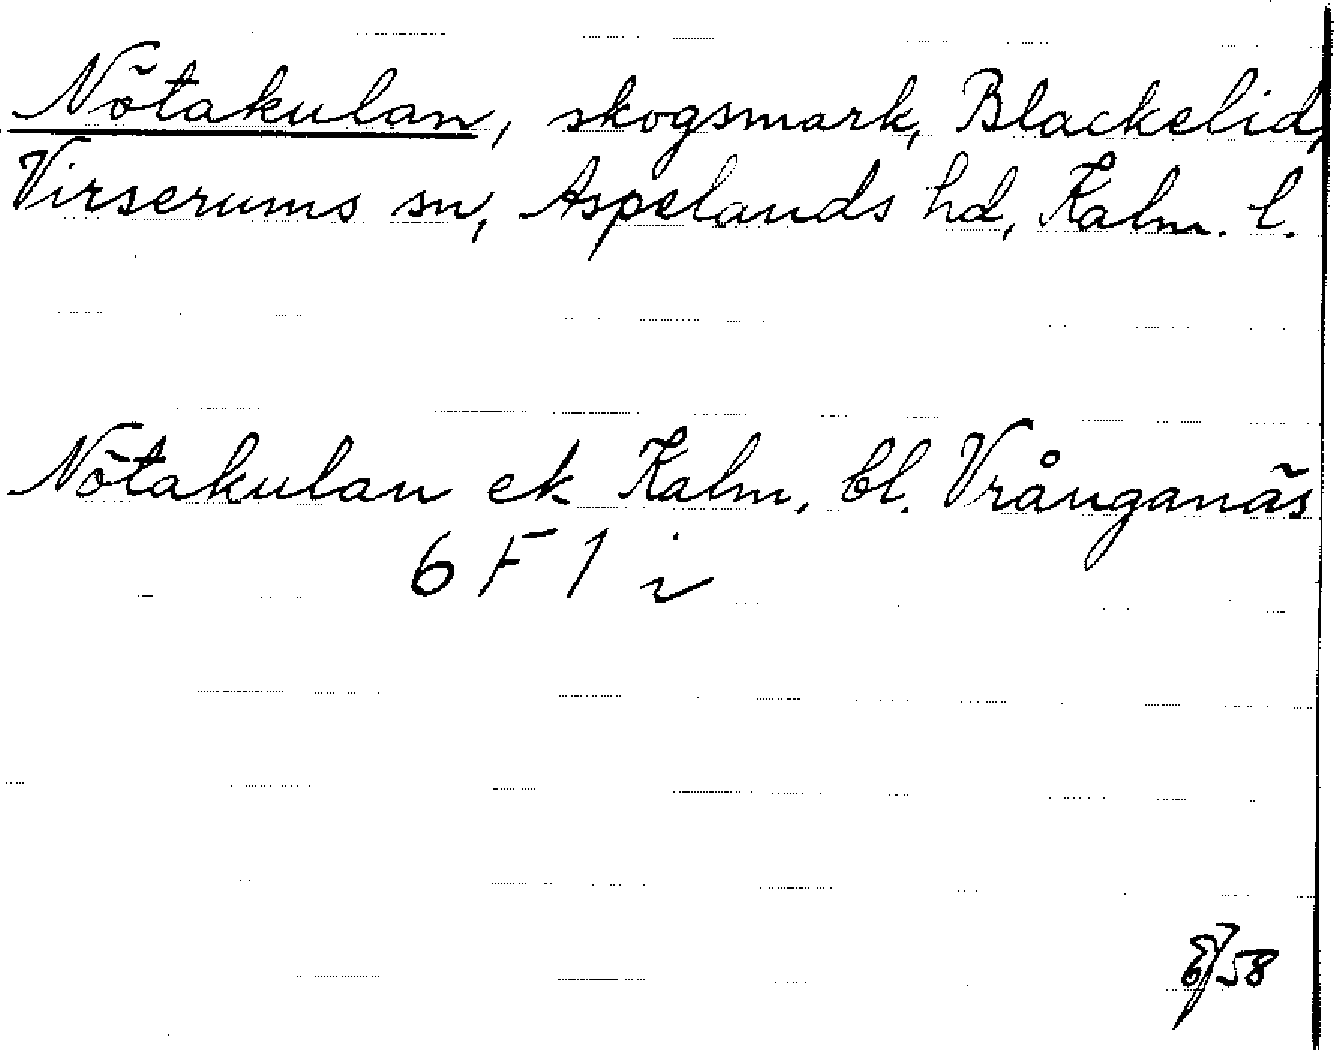 Nötakulan, skogsmark, Blackelid,
Virserums sn, Aspelands hd, Kalm. l.
Nötakulan ek Kalm, bl. Vrånganäs
6 F 1 i
58